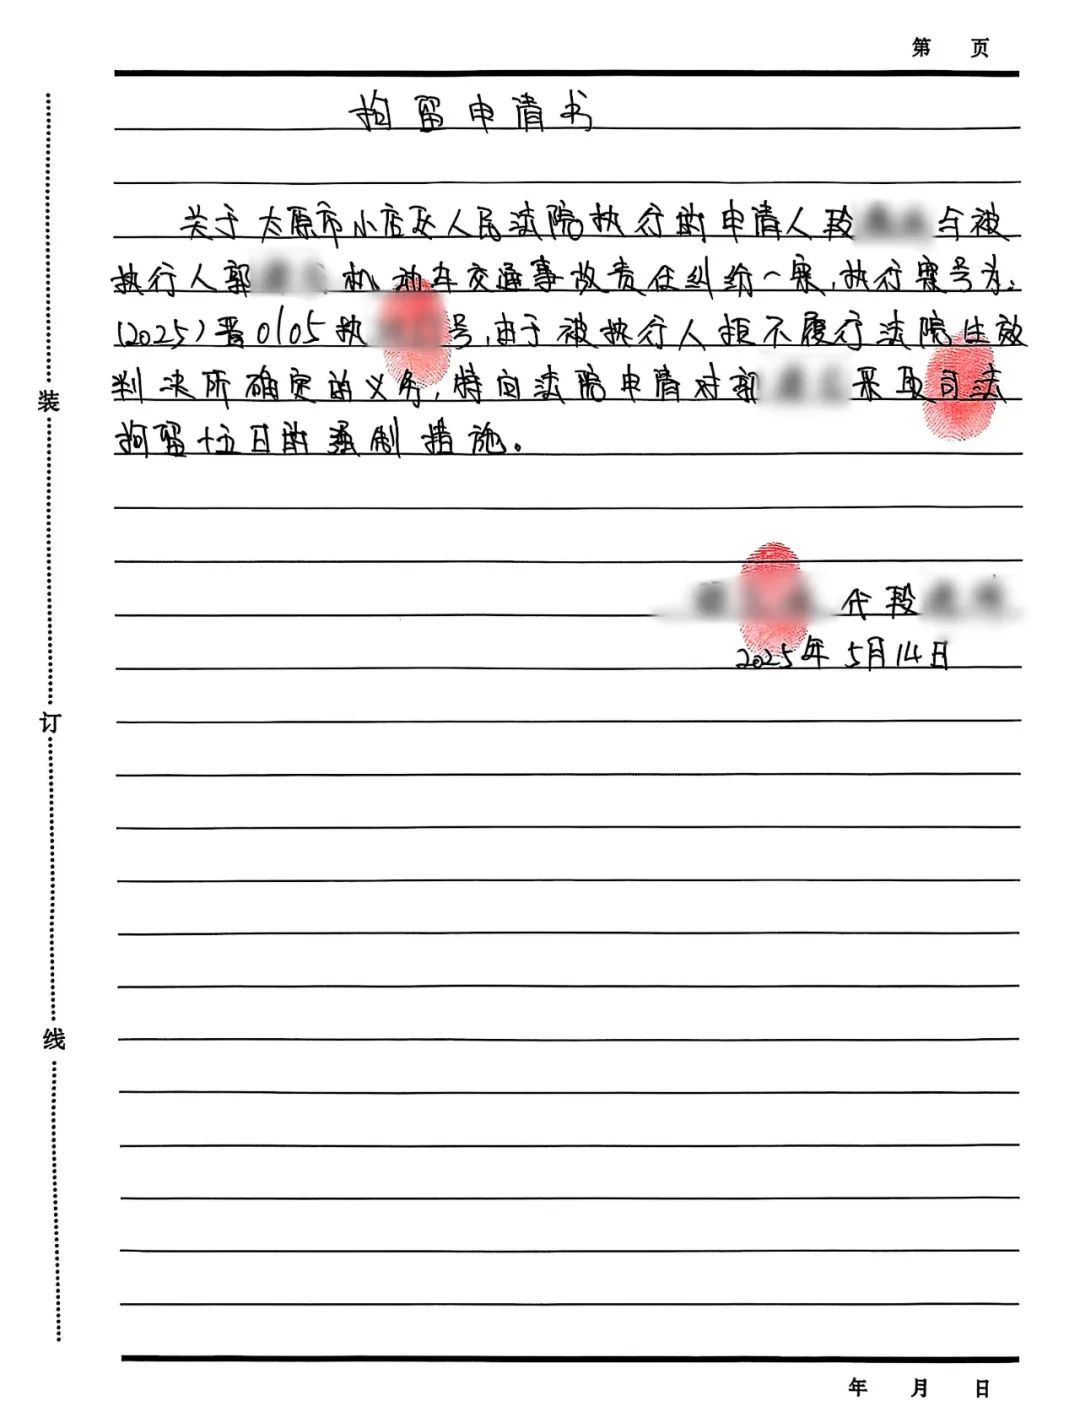 第 页
拘留申请书
关于太原市小店区人民法院执行的申请人段 与被
执行人郭 机动车交通事故责任纠纷一案,执行案号为:
(2025)晋0105执 号,由于被执行人拒不履行法院生效
判决所确定的义务,特向法院申请对郭 采取司法
拘留十五日的强制措施。
代段
2025年5月14日
装
订
线
年 月 日